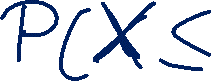 P(X ≤